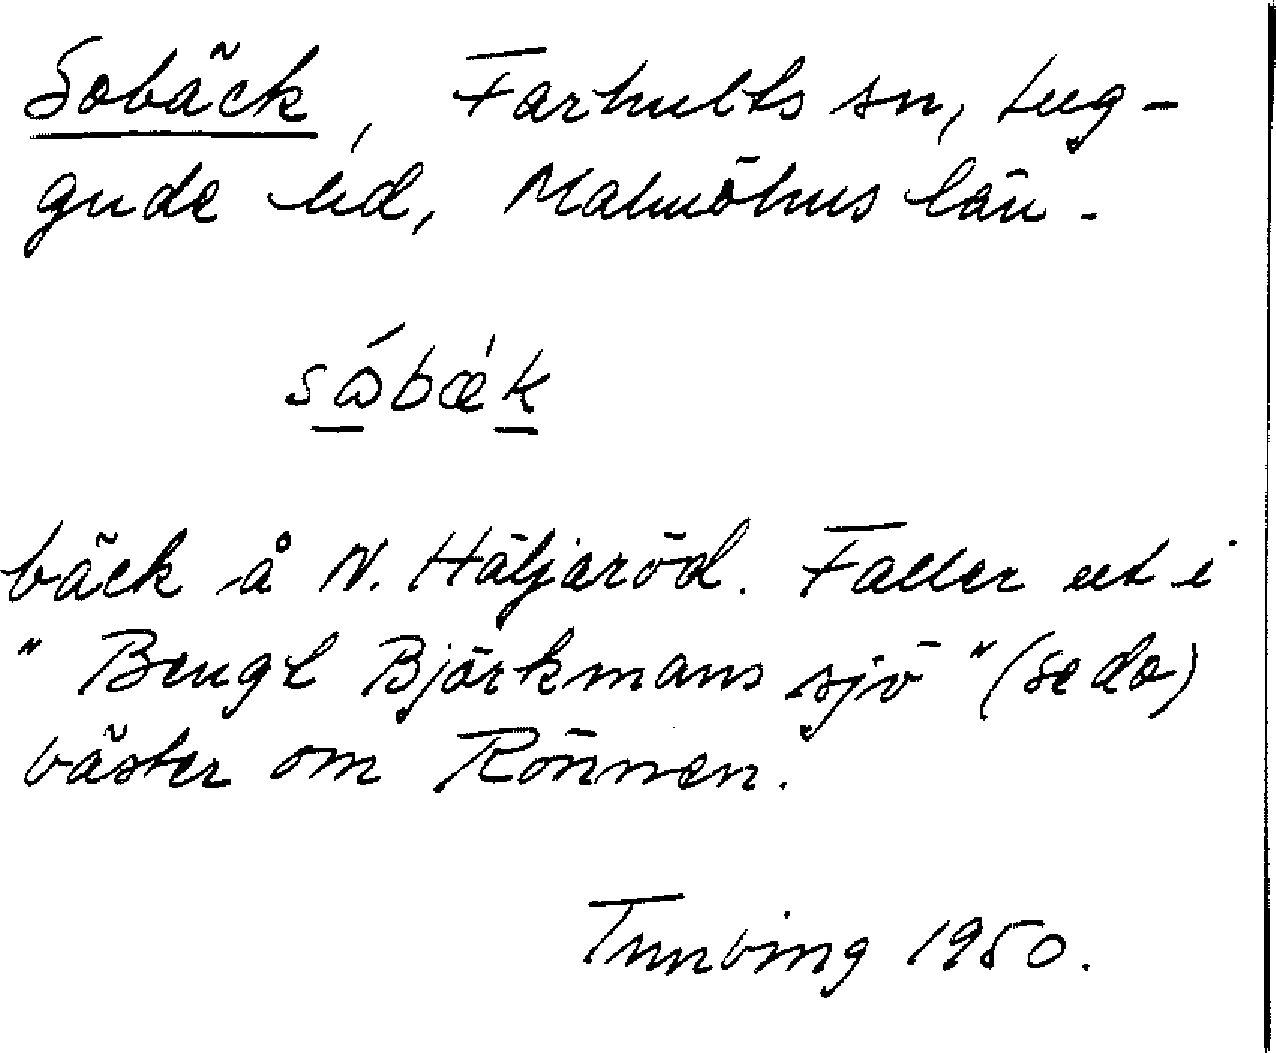 Sobäck, Farhults sn, Lug-
gude hd, Malmöhus län.
sώbæ̍k
bäck å N. Häljaröd. Faller ut i
"Bengt Björkmans sjö" (se do)
väster om Rönnen.
Tunving 1950.